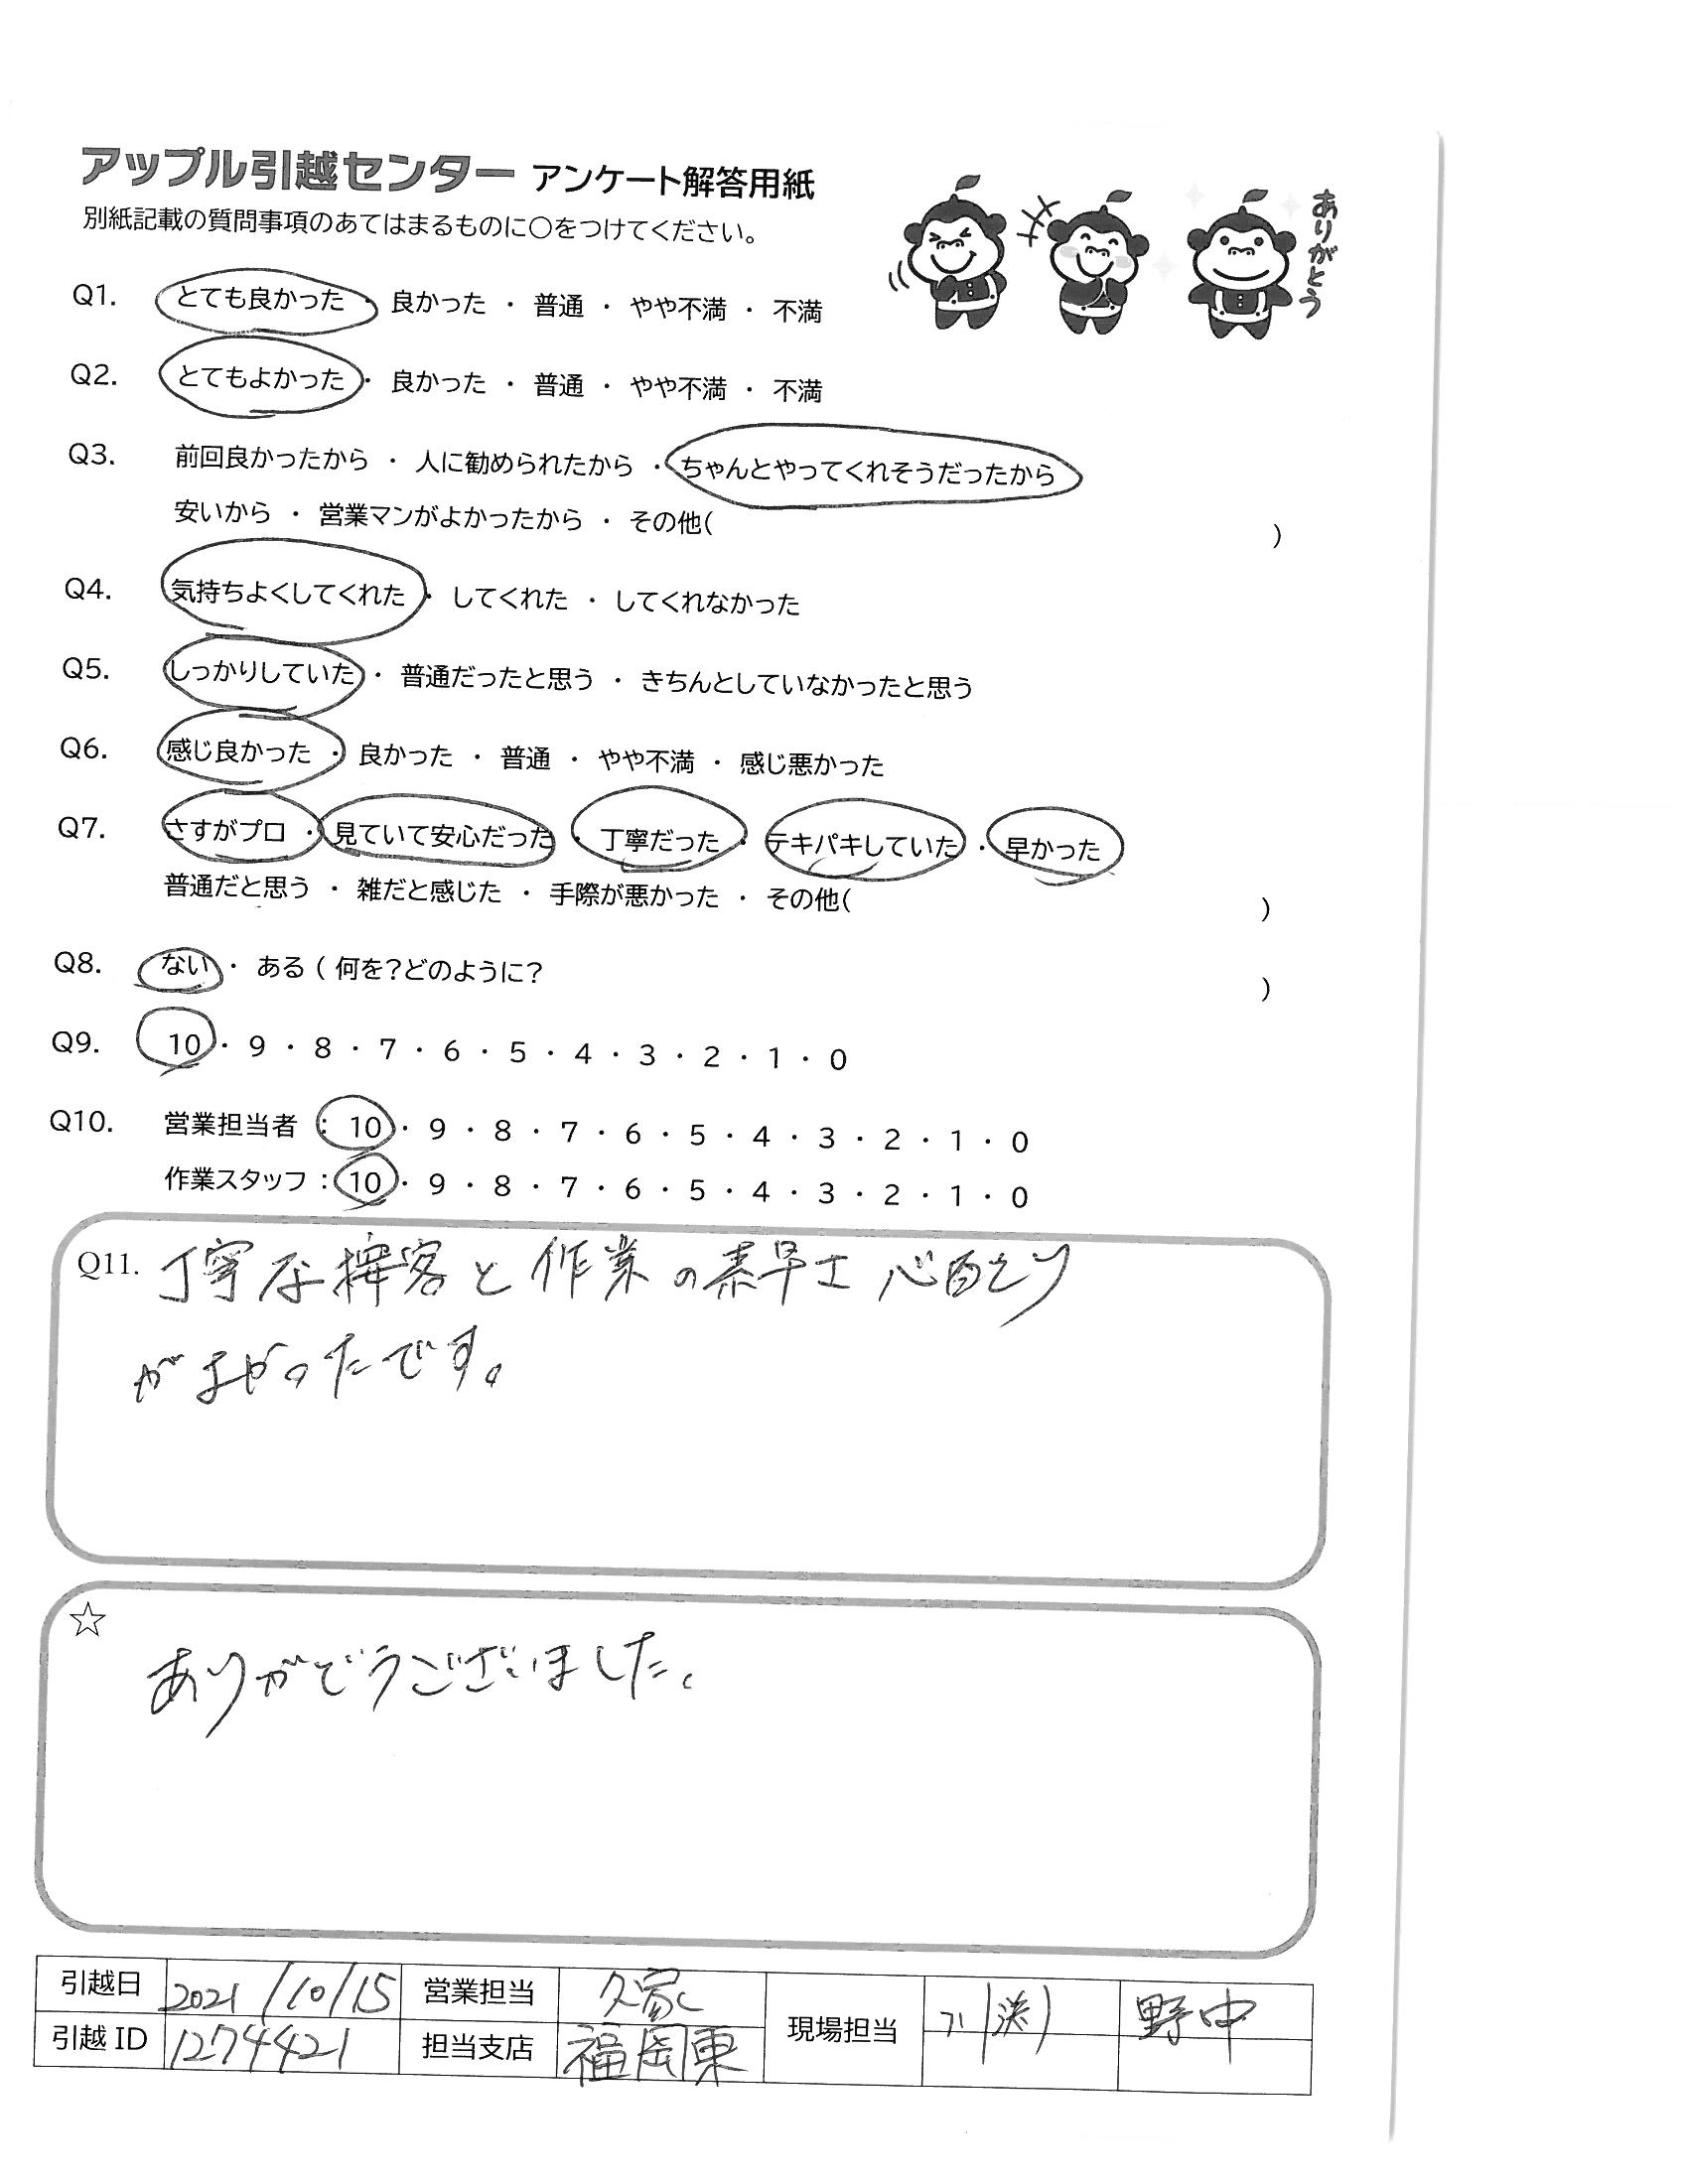 アップル引越センター アンケート解答用紙
別紙記載の質問事項のあてはまるものに○をつけてください。
ありがとう
Q1. とても良かった ・ 良かった ・ 普通 ・ やや不満 ・ 不満
Q2. とてもよかった ・ 良かった ・ 普通 ・ やや不満 ・ 不満
Q3. 前回良かったから ・ 人に勧められたから ・ ちゃんとやってくれそうだったから
安いから ・ 営業マンがよかったから ・ その他( )
Q4. 気持ちよくしてくれた ・ してくれた ・ してくれなかった
Q5. しっかりしていた ・ 普通だったと思う ・ きちんとしていなかったと思う
Q6. 感じ良かった ・ 良かった ・ 普通 ・ やや不満 ・ 感じ悪かった
Q7. さすがプロ ・ 見ていて安心だった ・ 丁寧だった ・ テキパキしていた ・ 早かった
普通だと思う ・ 雑だと感じた ・ 手際が悪かった ・ その他( )
Q8. ない ・ ある ( 何を?どのように? )
Q9. 10 ・ 9 ・ 8 ・ 7 ・ 6 ・ 5 ・ 4 ・ 3 ・ 2 ・ 1 ・ 0
Q10. 営業担当者 : 10 ・ 9 ・ 8 ・ 7 ・ 6 ・ 5 ・ 4 ・ 3 ・ 2 ・ 1 ・ 0
作業スタッフ : 10 ・ 9 ・ 8 ・ 7 ・ 6 ・ 5 ・ 4 ・ 3 ・ 2 ・ 1 ・ 0
Q11. 丁寧な接客と作業の素早さ 心配り
がよかったです。
☆
ありがどうございました。
引越日 2021/10/15 営業担当 久家 現場担当 野中
引越 ID 1274421 担当支店 福岡東